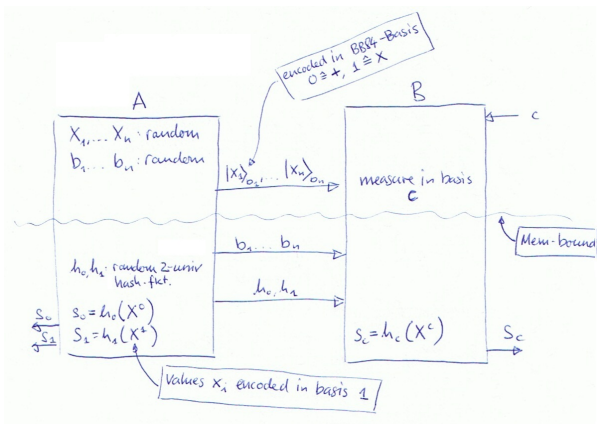 encoded in BB84-Basis
0 ≙ +, 1 ≙ ×
A
B
X₁,... Xₙ : random
b₁... bₙ : random
|X₁⟩b₁, ... |Xₙ⟩bₙ
c
measure in basis
c
Mem-bound
b₁ ... bₙ
h₀,h₁ : random 2-univ
hash-fkt.
h₀, h₁
S₀
S₀ = h₀(X⁰)
S₁
S₁ = h₁(X¹)
S_c = h_c(X^c)
S_c
Values x_i encoded in basis 1